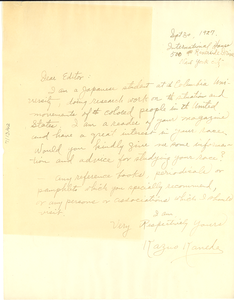 Sept 30 1929.
International House
500 Riverside Drive
New York, N.Y.
Dear Editor:
I am a Japanese student at Columbia Uni-
versity doing research work on the situation and
movements of colored people in the United
States. I am a reader of your magazine
and have a great interest in your race.
Would you kindly give me some inform-
ation and advice for studying your race?
Any reference books, periodicals or
pamphlets which you specially recommend,
or any persons or associations which I should
visit.
I am
Very Respectfully Yours